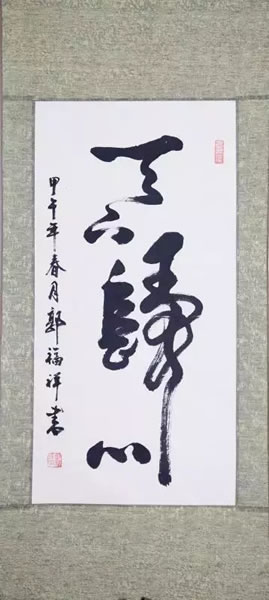 天下歸心
甲午年春月郭福祥書